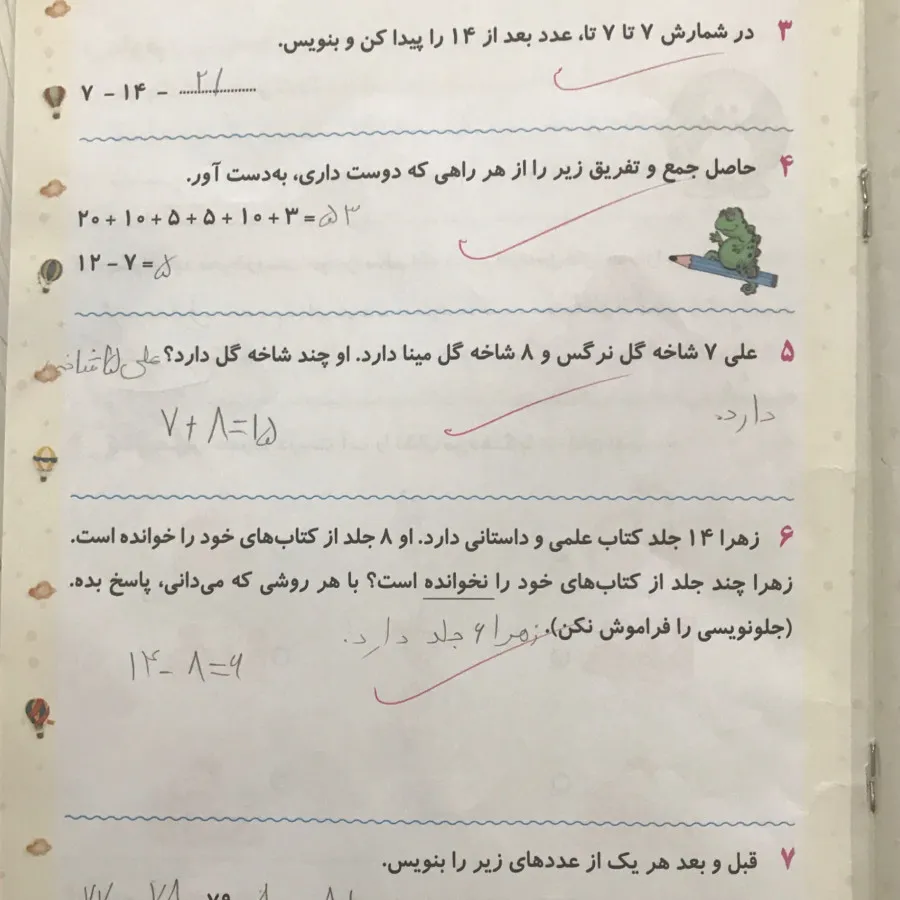 ۳ در شمارش ۷ تا ۷ تا، عدد بعد از ۱۴ را پیدا کن و بنویس.
۷ - ۱۴ - ۲۱
۴ حاصل جمع و تفریق زیر را از هر راهی که دوست داری، به‌دست آور.
۲۰ + ۱۰ + ۵ + ۵ + ۱۰ + ۳ = ۵۳
۱۲ - ۷ = ۵
۵ علی ۷ شاخه گل نرگس و ۸ شاخه گل مینا دارد. او چند شاخه گل دارد؟ علی ۱۵ شاخه
دارد.
۷ + ۸ = ۱۵
۶ زهرا ۱۴ جلد کتاب علمی و داستانی دارد. او ۸ جلد از کتاب‌های خود را خوانده است.
زهرا چند جلد از کتاب‌های خود را نخوانده است؟ با هر روشی که می‌دانی، پاسخ بده.
(جلونویسی را فراموش نکن). زهرا ۶ جلد دارد.
۱۴ - ۸ = ۶
۷ قبل و بعد هر یک از عددهای زیر را بنویس.